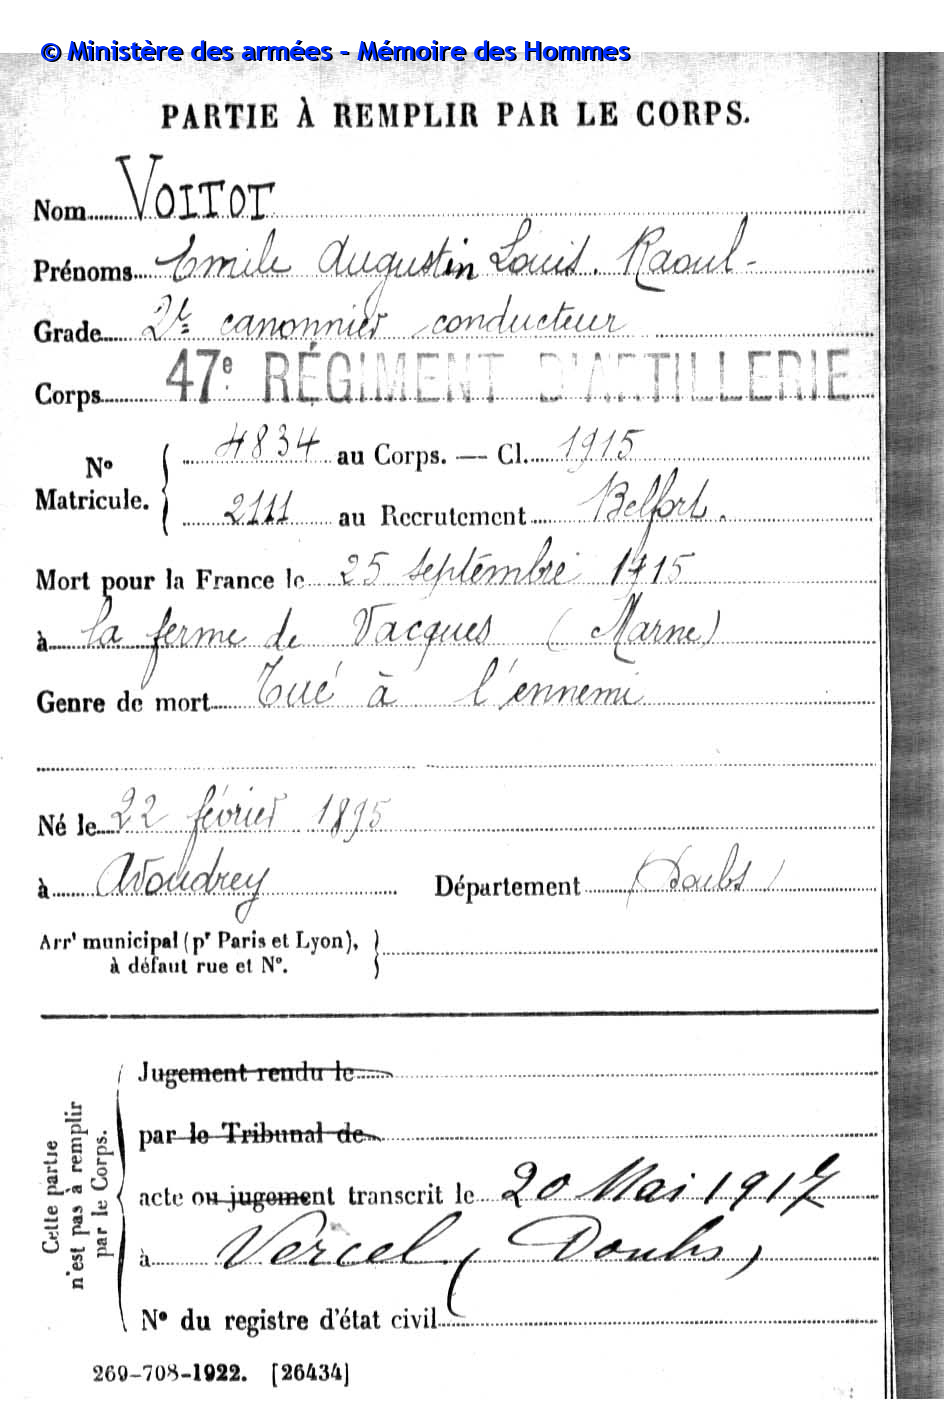 © Ministère des armées - Mémoire des Hommes
PARTIE À REMPLIR PAR LE CORPS.
Nom VOITOT
Prénoms Emile Augustin Louis. Raoul -
Grade 2e canonnier conducteur
Corps 47e RÉGIMENT D'ARTILLERIE
N° Matricule.
4834 au Corps. — Cl. 1915
2111 au Recrutement Belfort.
Mort pour la France le 25 septembre 1915
à la ferme de Vacques (Marne)
Genre de mort Tué à l'ennemi
Né le 22 février 1895
à Avoudrey Département (Doubs)
Arrt municipal (pr Paris et Lyon),
à défaut rue et N°.
Cette partie
n'est pas à remplir
par le Corps.
Jugement rendu le
par le Tribunal de
acte ou jugement transcrit le 20 Mai 1917
à Vercel (Doubs)
N° du registre d'état civil
269-708-1922. [26434]